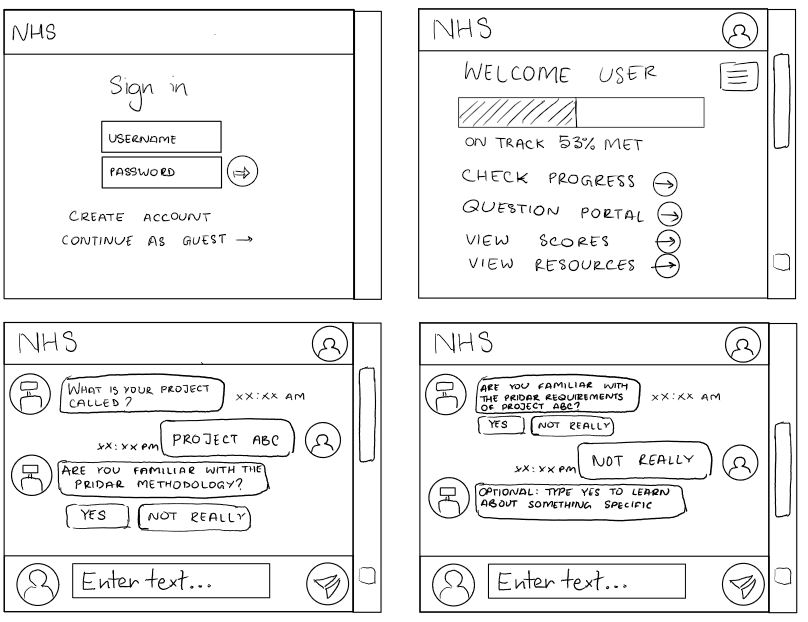 NHS
Sign in
USERNAME
PASSWORD
CREATE ACCOUNT
CONTINUE AS GUEST →
NHS
WELCOME USER
ON TRACK 53% MET
CHECK PROGRESS
QUESTION PORTAL
VIEW SCORES
VIEW RESOURCES
NHS
WHAT IS YOUR PROJECT
CALLED?
XX:XX AM
XX:XX PM
PROJECT ABC
ARE YOU FAMILIAR WITH THE
PRIDAR METHODOLOGY?
YES
NOT REALLY
Enter text...
NHS
ARE YOU FAMILIAR WITH
THE PRIDAR REQUIREMENTS
OF PROJECT ABC?
XX:XX AM
YES
NOT REALLY
XX:XX PM
NOT REALLY
OPTIONAL: TYPE YES TO LEARN
ABOUT SOMETHING SPECIFIC
Enter text...